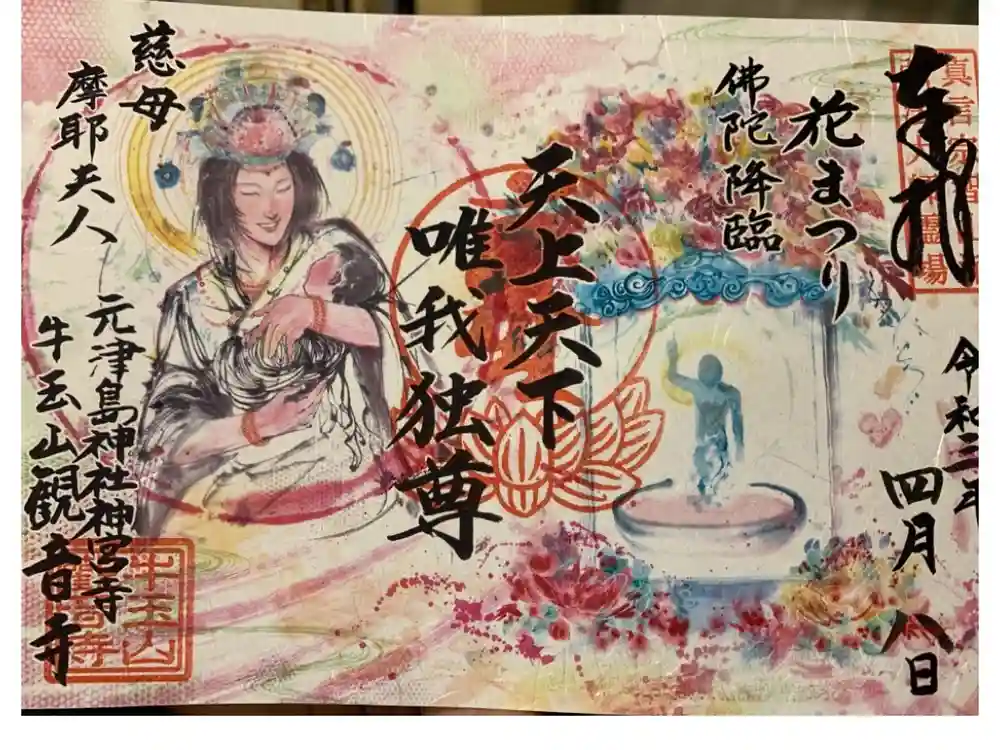 奉拝
令和三年
四月八日
花まつり
佛陀降臨
天上天下
唯我独尊
慈母
摩耶夫人
元津島神社神宮寺
牛玉山観音寺
牛玉山